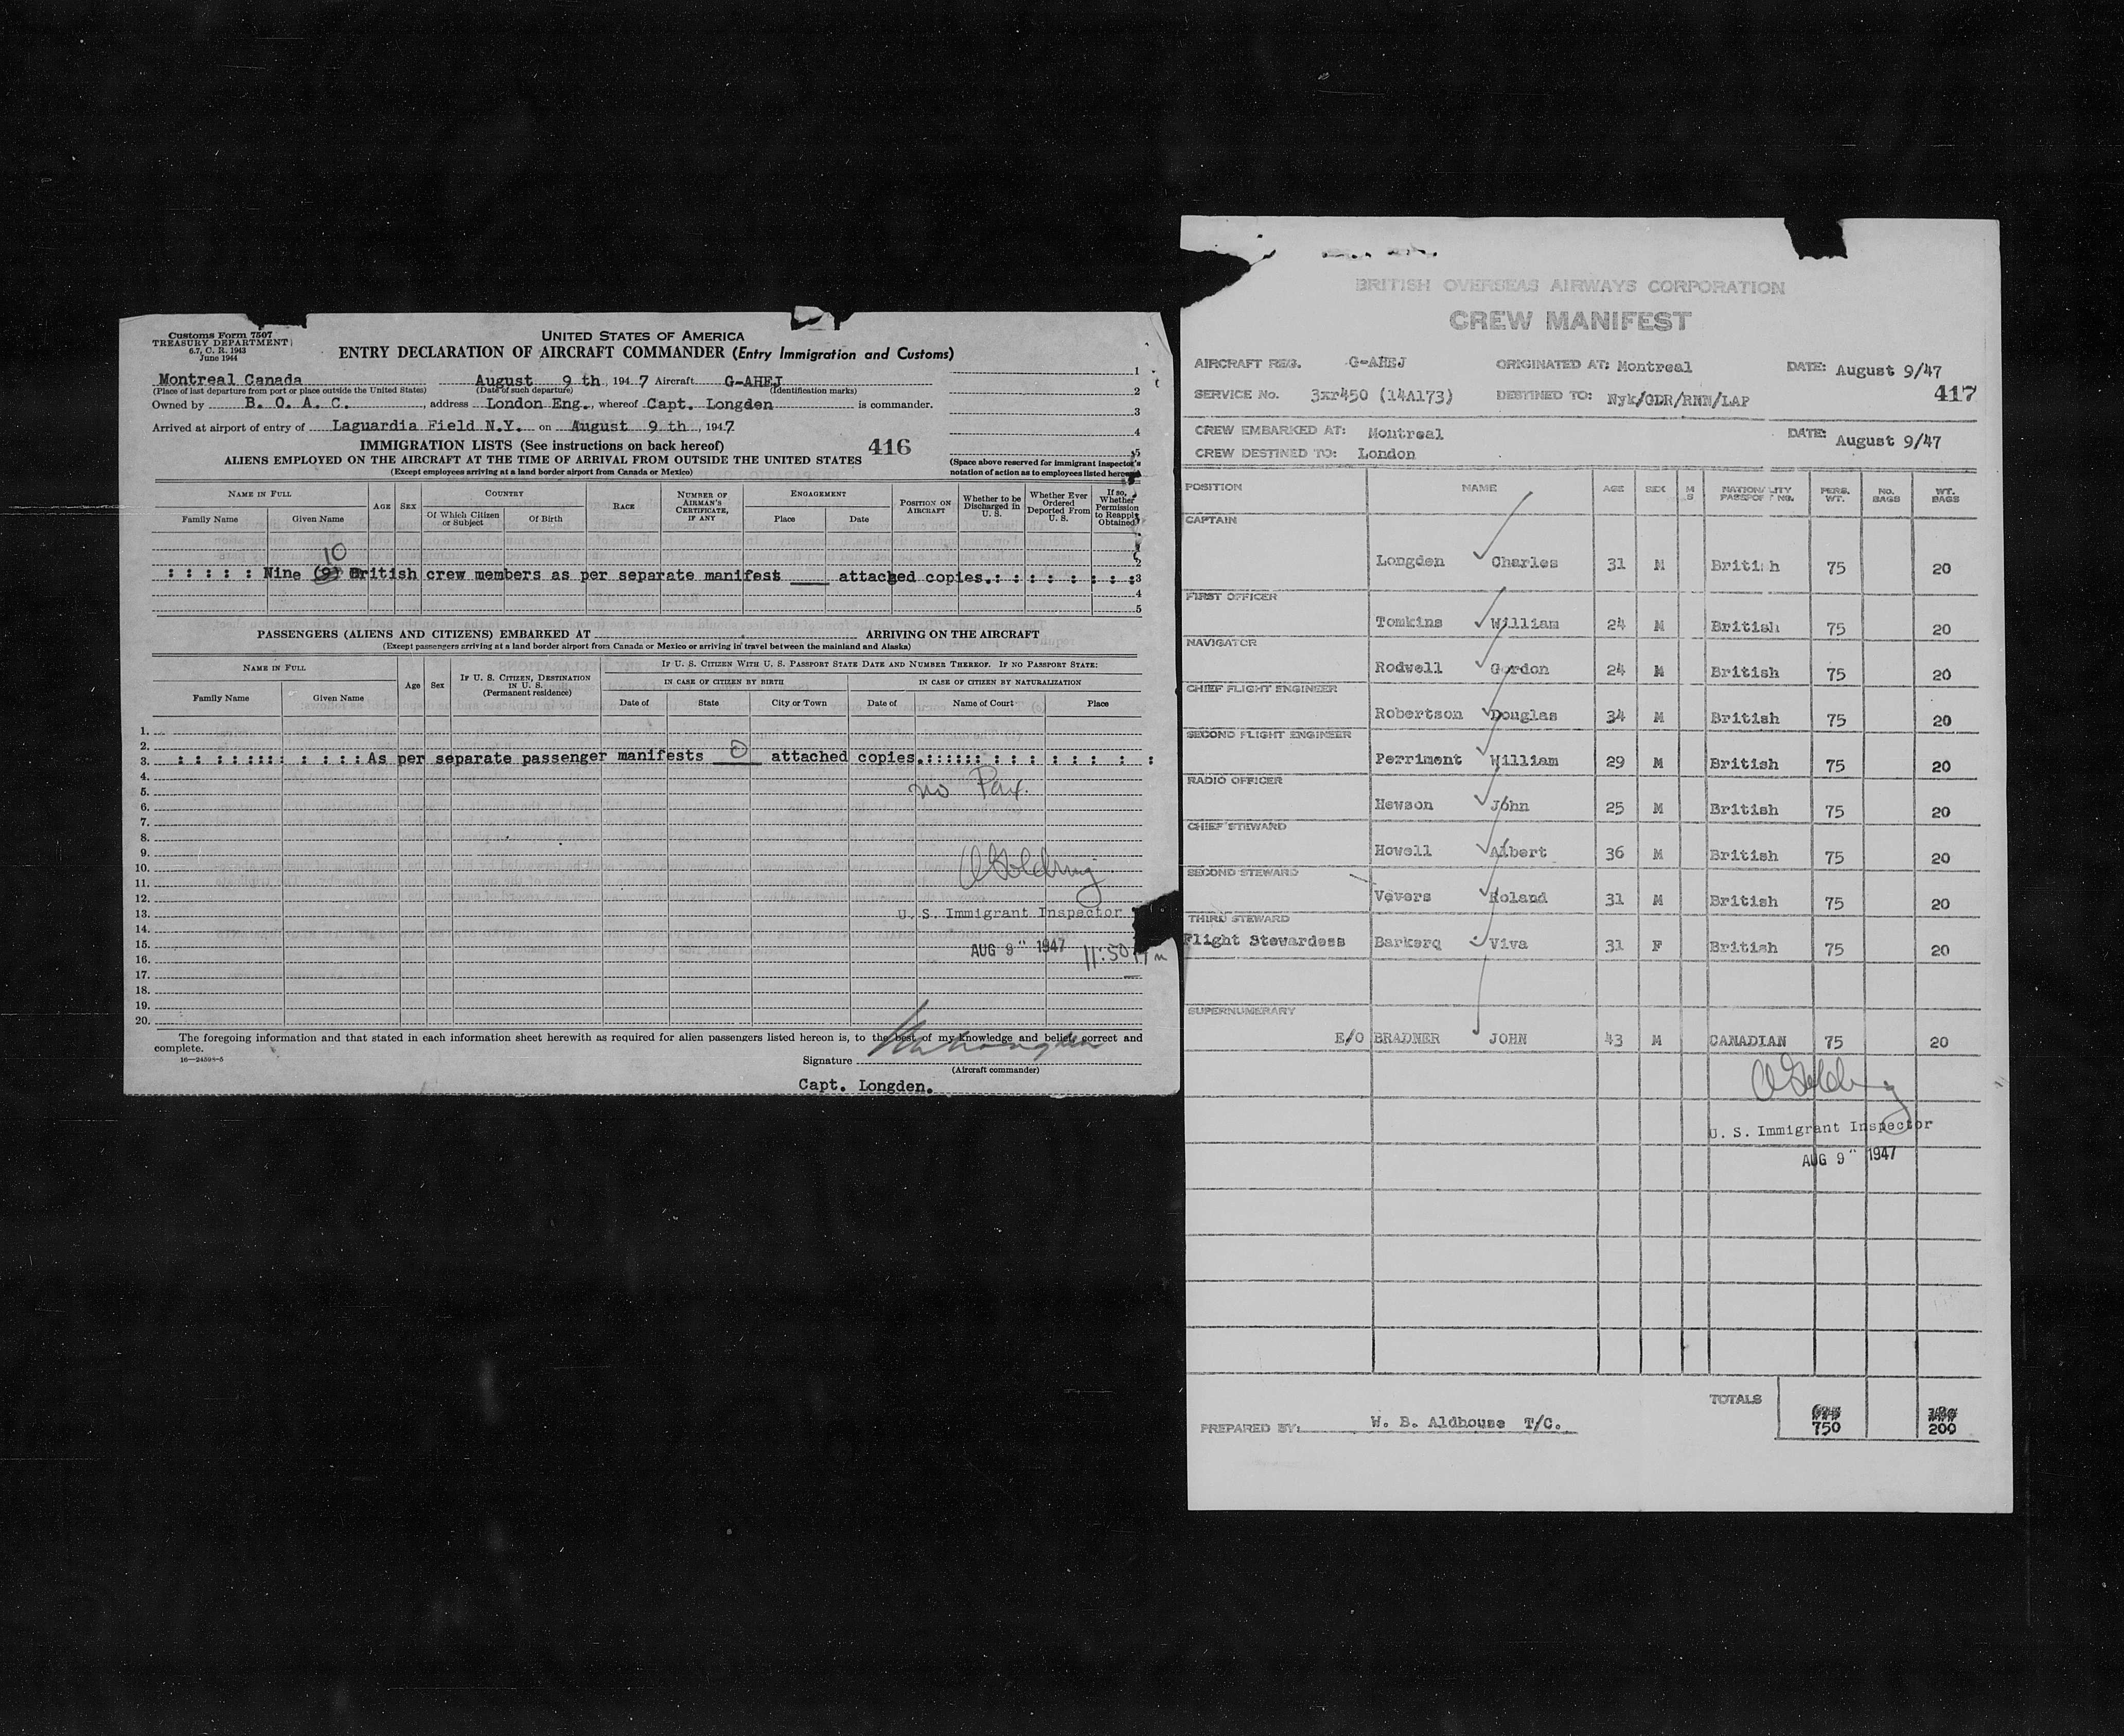 Customs Form 7507
TREASURY DEPARTMENT
6.7, C. R. 1943
June 1944
UNITED STATES OF AMERICA
ENTRY DECLARATION OF AIRCRAFT COMMANDER (Entry Immigration and Customs)
Montreal Canada August 9 th, 1947 Aircraft G-AHEJ
(Place of last departure from port or place outside the United States) (Date of such departure) (Identification marks)
Owned by B. O. A. C., address London Eng., whereof Capt. Longden is commander.
Arrived at airport of entry of Laguardia Field N.Y. on August 9 th, 1947
1
2
3
4
5
IMMIGRATION LISTS (See instructions on back hereof) 416
ALIENS EMPLOYED ON THE AIRCRAFT AT THE TIME OF ARRIVAL FROM OUTSIDE THE UNITED STATES
(Except employees arriving at a land border airport from Canada or Mexico)
(Space above reserved for immigrant inspector's notation of action as to employees listed hereon)
NAME IN FULL
Family Name Given Name
AGE SEX
COUNTRY
Of Which Citizen or Subject Of Birth
RACE
NUMBER OF AIRMAN'S CERTIFICATE, IF ANY
ENGAGEMENT
Place Date
POSITION ON AIRCRAFT
Whether to be Discharged in U. S.
Whether Ever Ordered Deported From U. S.
If so, Whether Permission to Reapply Obtained
10
: : : : : Nine (9) British crew members as per separate manifest attached copies.: : : : : : : :3
4
5
PASSENGERS (ALIENS AND CITIZENS) EMBARKED AT ARRIVING ON THE AIRCRAFT
(Except passengers arriving at a land border airport from Canada or Mexico or arriving in travel between the mainland and Alaska)
NAME IN FULL
Family Name Given Name
Age Sex
IF U. S. CITIZEN, DESTINATION IN U. S. (Permanent residence)
IF U. S. CITIZEN WITH U. S. PASSPORT STATE DATE AND NUMBER THEREOF. IF NO PASSPORT STATE:
IN CASE OF CITIZEN BY BIRTH IN CASE OF CITIZEN BY NATURALIZATION
Date of State City or Town Date of Name of Court Place
1.
2.
3. : : : : : : : : : : : : As per separate passenger manifests 0 attached copies.: : : : : : : : : : : : :
4.
5. no Pax.
6.
7.
8.
9.
10. Golding
11.
12.
13. U. S. Immigrant Inspector
14.
15. AUG 9 1947 11:50
16.
17.
18.
19.
20.
The foregoing information and that stated in each information sheet herewith as required for alien passengers listed hereon is, to the best of my knowledge and belief, correct and
complete.
16—24598-5
Signature
(Aircraft commander)
Capt. Longden.
BRITISH OVERSEAS AIRWAYS CORPORATION
CREW MANIFEST
AIRCRAFT REG. G-AHEJ ORIGINATED AT: Montreal DATE: August 9/47
SERVICE No. 3xr450 (14A173) DESTINED TO: Nyk/GDR/RNN/LAP 417
CREW EMBARKED AT: Montreal DATE: August 9/47
CREW DESTINED TO: London
POSITION NAME AGE SEX M S NATIONALITY PASSPORT NO. PERS. WT. No. BAGS WT. BAGS
CAPTAIN
Longden Charles 31 M British 75 20
FIRST OFFICER
Tomkins William 24 M British 75 20
NAVIGATOR
Rodwell Gordon 24 M British 75 20
CHIEF FLIGHT ENGINEER
Robertson Douglas 34 M British 75 20
SECOND FLIGHT ENGINEER
Perriment William 29 M British 75 20
RADIO OFFICER
Hewson John 25 M British 75 20
CHIEF STEWARD
Howell Albert 36 M British 75 20
SECOND STEWARD
Vevers Roland 31 M British 75 20
THIRD STEWARD
Flight Stewardess Barkerq Viva 31 F British 75 20
SUPERNUMERARY
E/O BRADNER JOHN 43 M CANADIAN 75 20
Golding
U. S. Immigrant Inspector
AUG 9 1947
TOTALS
750 200
PREPARED BY: W. B. Aldhouse T/C.